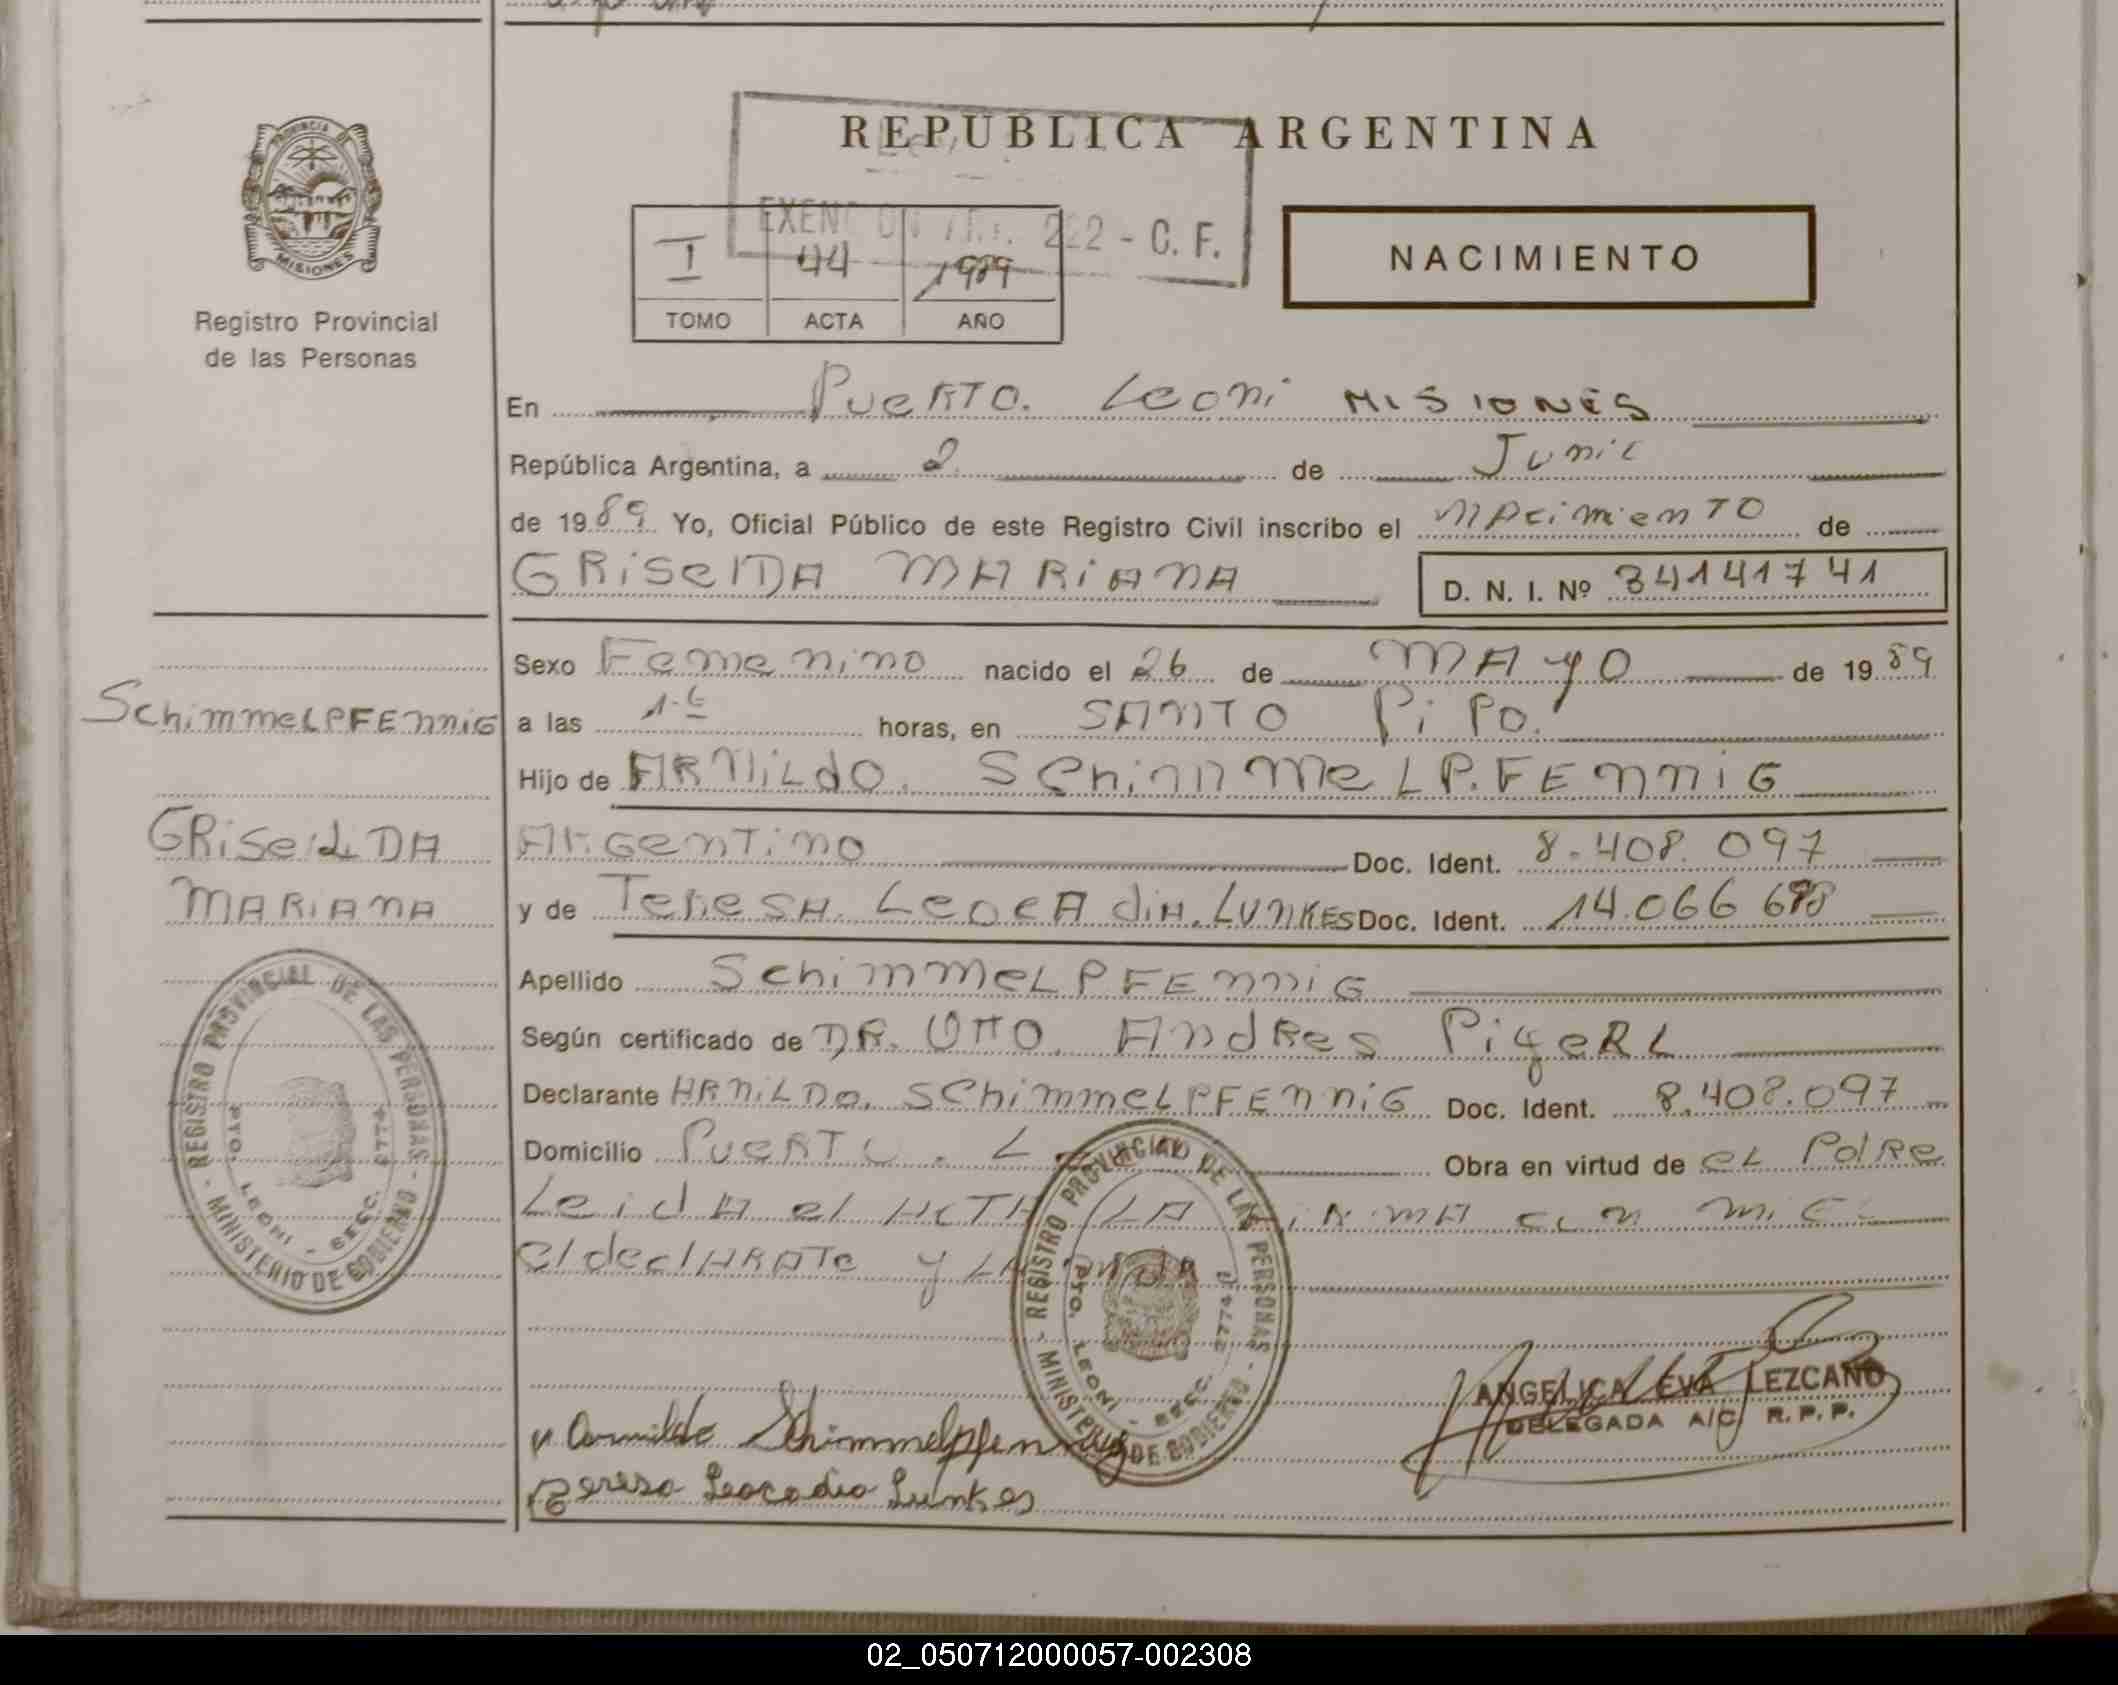 REPUBLICA ARGENTINA
NACIMIENTO
EXENCION ART. 222 - C. F.
I 44 1989
TOMO ACTA AÑO
PROVINCIA DE MISIONES
Registro Provincial
de las Personas
En Puerto. Leoni MISIONES
República Argentina, a 2 de Junio
de 1989 Yo, Oficial Público de este Registro Civil inscribo el nacimiento de
GRiselDA MARiANA D. N. I. Nº 34141741
Sexo Femenino nacido el 26 de MAyO de 1989
a las horas, en SANTO PiPO.
Hijo de ARNiLdO. SchimmeLP.FENNiG
ARGentino Doc. Ident. 8.408.097
y de TeResA. LeOcAdiA. LUNKES Doc. Ident. 14.066
Apellido SchimmeLPFENNiG
Según certificado de DR. OttO. ANdRes PigeRL
Declarante ARNiLDO. SchimmeLPFENNiG Doc. Ident. 8.408.097
Domicilio PueRTO. L Obra en virtud de eL PAdRe
LeidA el ACTA LA FiRMA con miGO
el declARATe y LA
SchimmeLPFENNiG
GRiselDA
MARiANA
REGISTRO PROVINCIAL DE LAS PERSONAS - MINISTERIO DE GOBIERNO -
PTO. LEONI - SECC. 2774
REGISTRO PROVINCIAL DE LAS PERSONAS - MINISTERIO DE GOBIERNO -
PTO. LEONI - SECC. 2774
ANGELICA EVA LEZCANO
DELEGADA A/C R.P.P.
Arnildo Schimmelpfennig
Teresa Leocadia Lunkes
02_050712000057-002308